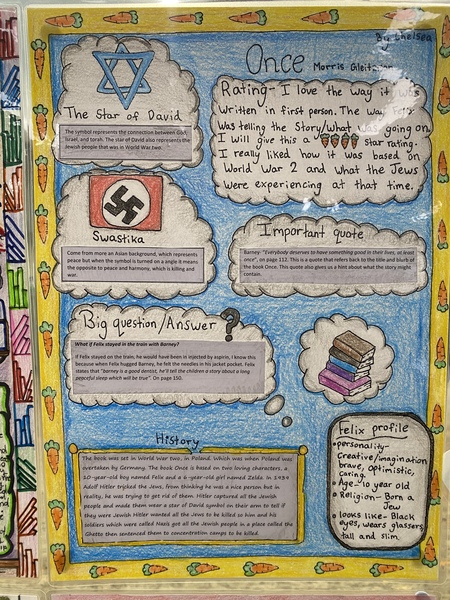 By Chelsea
Once
Morris Gleitzman
The Star of David
The symbol represents the connection between God,
Israel, and torah. The star of David also represents the
Jewish people that was in World War two.
Rating- I love the way it was
written in first person. The way Felix
was telling the story/what was going on.
I will give this a star rating.
I really liked how it was based on
World War 2 and what the Jews
were experiencing at that time.
Swastika
Come from more an Asian background, which represents
peace but when the symbol is turned on a angle it means
the opposite to peace and harmony, which is killing and
war.
Important quote
Barney- "Everybody deserves to have something good in their lives, at least
once", on page 112. This is a quote that refers back to the title and blurb of
the book Once. This quote also gives us a hint about what the story might
contain.
Big question/Answer ?
What if Felix stayed in the train with Barney?
If Felix stayed on the train, he would have been in injected by aspirin, I know this
because when Felix hugged Barney, he felt the needles in his jacket pocket. Felix
states that "barney is a good dentist, he'll tell the children a story about a long
peaceful sleep which will be true". On page 150.
History
The book was set in World War two, in Poland. Which was when Poland was
overtaken by Germany. The book Once is based on two loving characters, a
10-year-old boy named Felix and a 6-year-old girl named Zelda. In
Adolf Hitler tricked the Jews, from thinking he was a nice person but in
reality, he was trying to get rid of them. Hitler captured all the Jewish
people and made them wear a star of David symbol on their arm to tell if
they were Jewish Hitler wanted all the Jews to be killed so him and his
soldiers which were called Nazis got all the Jewish people in a place called the
Ghetto then sentenced them to concentration camps to be killed.
Felix profile
• personality-
Creative/imagination
brave, optimistic,
caring.
• Age- 10 year old
• Religion- Born a
Jew
• looks like- Black
eyes, wears glassers,
tall and slim.